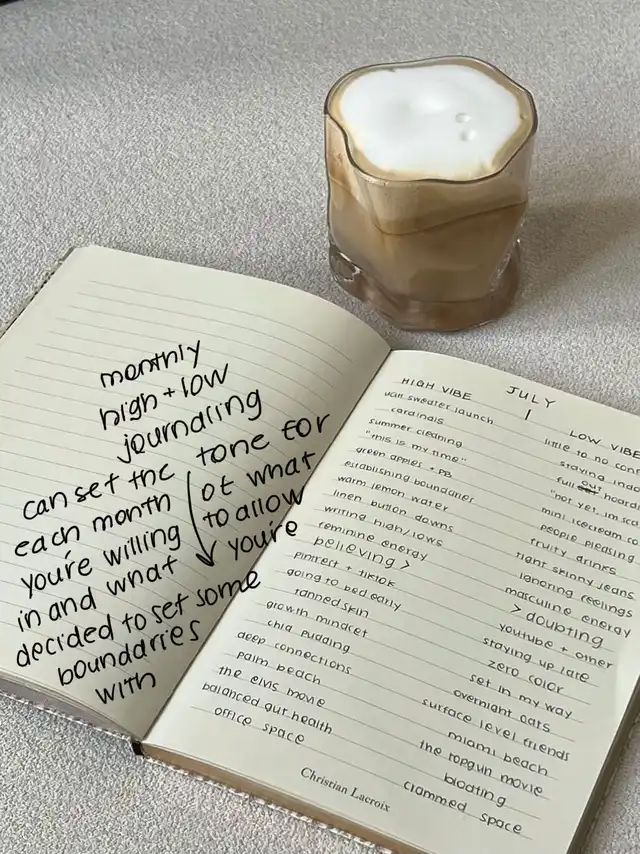 monthly
high + low
journaling
can set the tone for
each month ot what
you're willing to allow
in and what you're
decided to set some
boundaries
with
JULY
HIGH VIBE
sweater launch
cardinals
summer cleaning
"this is my time"
green apples + PB
establishing boundaries
warm lemon water
linen button downs
writing high/lows
feminine energy
believing >
pintrest + tiktok
going to bed early
tanned skin
growth mindset
chia pudding
deep connections
palm beach
the elvis movie
balanced gut health
office space
LOW VIBE
little to no
staying
full out
"not yet im
mini icecream
people pleasing
fruity drinks
tight skinny jeans
ignoring feelings
masculine energy
> doubting
youtube + other
staying up late
zero color
set in my way
overnight oats
surface level friends
miami beach
the topgun movie
bloating
clammed space
Christian Lacroix